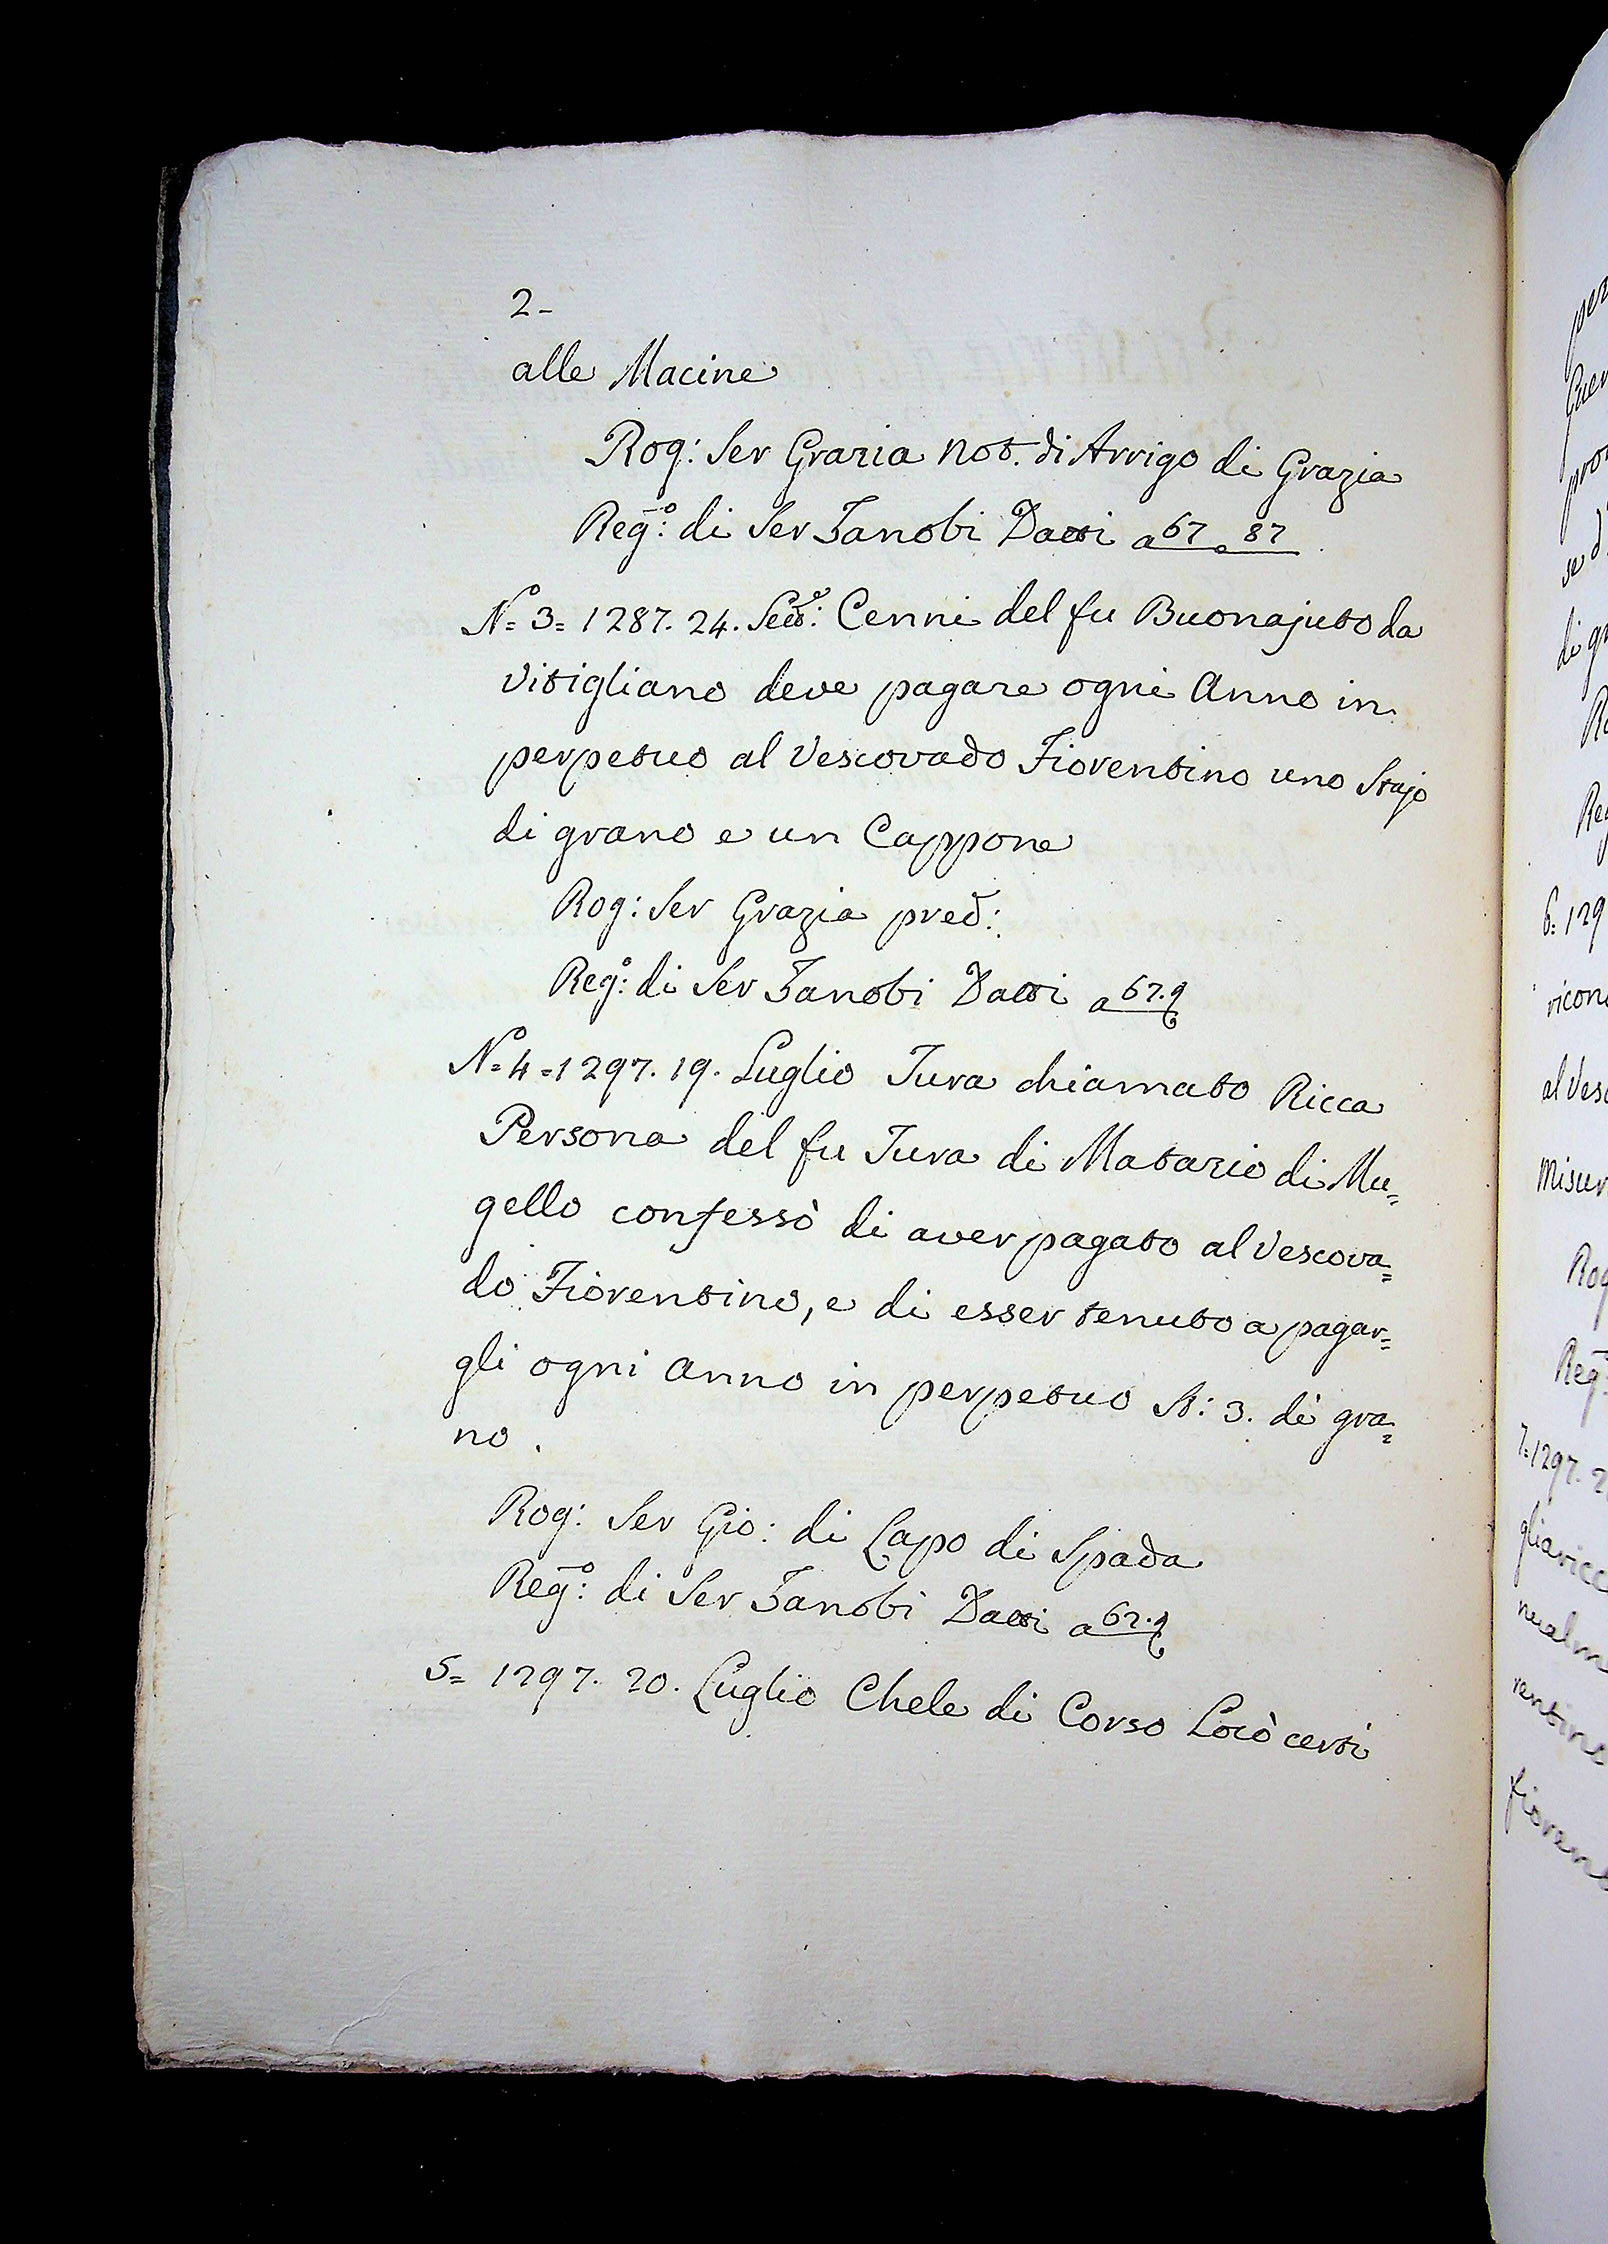 2-
alle Macine
Rog: Ser Grazia Not. di Arrigo di Grazia
Reg.º: di Ser Zanobi Datti a 67 e 87
Nº= 3= 1287. 24. Sett.e: Cenni del fu Buonajuto da
Vitigliano deve pagare ogni Anno in
perpetuo al Vescovado Fiorentino uno Stajo
di grano e un Cappone
Rog: Ser Grazia pred:
Reg.º: di Ser Zanobi Datti a 67.
Nº= 4= 1297. 19. Luglio Jura chiamato Ricca
Persona del fu Jura di Matazio di Mu=
gello confessò di aver pagato al Vescova=
do Fiorentino, e di esser tenuto a pagar=
gli ogni anno in perpetuo St: 3. di gra=
no.
Rog: Ser Gio: di Lapo di Spada
Reg.º: di Ser Zanobi Datti a 67.
5= 1297. 20. Luglio Chele di Corso Locò certi
per
pro
se d
di gr
R
Reg
6: 129
ricon
al Vesc
Misur
Rog
Reg
7=1297. 2
gliaricc
nualm
rentino
fioren